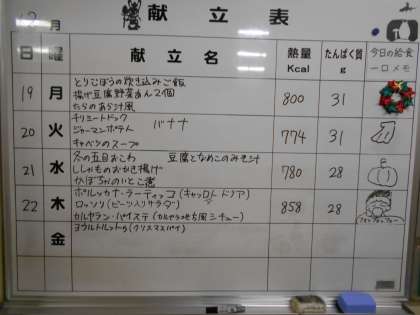 12月 献立表
日 曜 献立名 熱量 Kcal たんぱく質 g 今日の給食 一口メモ
19 月 とりごぼうの炊き込みご飯
揚げ豆腐野菜あん2個 800 31
たらのあら汁風
20 火 チリミートドック バナナ
ジャーマンポテト 774 31
キャベツのスープ
21 水 冬の五目おこわ 豆腐となめこのみそ汁
ししゃものおかき揚げ 780 28
かぼちゃのいとこ煮
22 木 ポルッカナ・ラーティッコ(キャロットドリア)
ロッソリ(ビーツ入りサラダ) 858 28
カルヤラン・パイスティ(カルヤラ地方風シチュー)
金 ヨウルトルットゥ(クリスマスパイ)